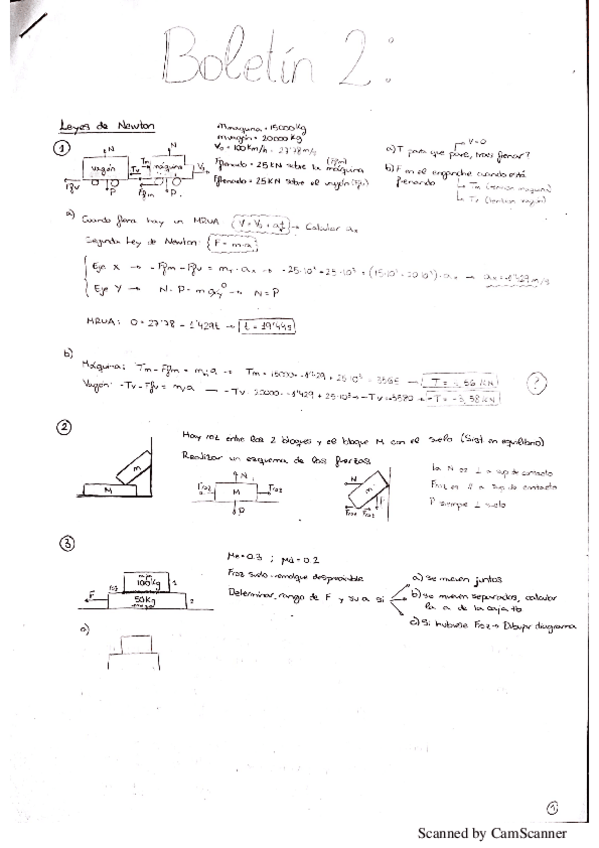 Boletín 2:
Leyes de Newton
mmaquina = 15000 Kg
mvagón = 20000 Kg
V0 = 100 Km/h = 27'78 m/s
Ffrenado = 25 KN sobre la máquina (Ffm)
Ffrenado = 25 KN sobre el vagón (Ffv)
a) T para que pare, tras frenar?
V=0
b) F en el enganche cuando está frenando
Tm (tensión máquina)
Tv (tensión vagón)
1
N N
vagón Tv Tm máquina V0
Ffv P Ffm P
a) Cuando frena hay un MRUA (V = V0 + at) → Calcular ax
Segunda Ley de Newton: F = m·a
Eje X → -Ffm - Ffv = mT · ax →
Eje Y → N - P = m ay → N = P
MRUA: 0 = 27'78 - 1'429t → t = 19'44s
b)
Máquina: Tm - Ffm = m·a →
Vagón: -Tv - Ffv = m·a →
2
Hay roz entre los 2 bloques y el bloque M con el suelo (Sist en equilibrio)
Realizar un esquema de las fuerzas
m
M
N
Froz M Froz
P
N
La N es ⊥ a sup de contacto
Froz es // a sup de contacto
P siempre ⊥ suelo
3
Me=0.3 ; μd=0.2
Froz suelo-remolque despreciable
Determinar rango de F y su a si
a) Se mueven juntos
b) se mueven separados, calcular la a de la caja
c) Si hubiese Froz → Dibujar diagrama
100kg 1
F 50kg 2
a)
1
Scanned by CamScanner